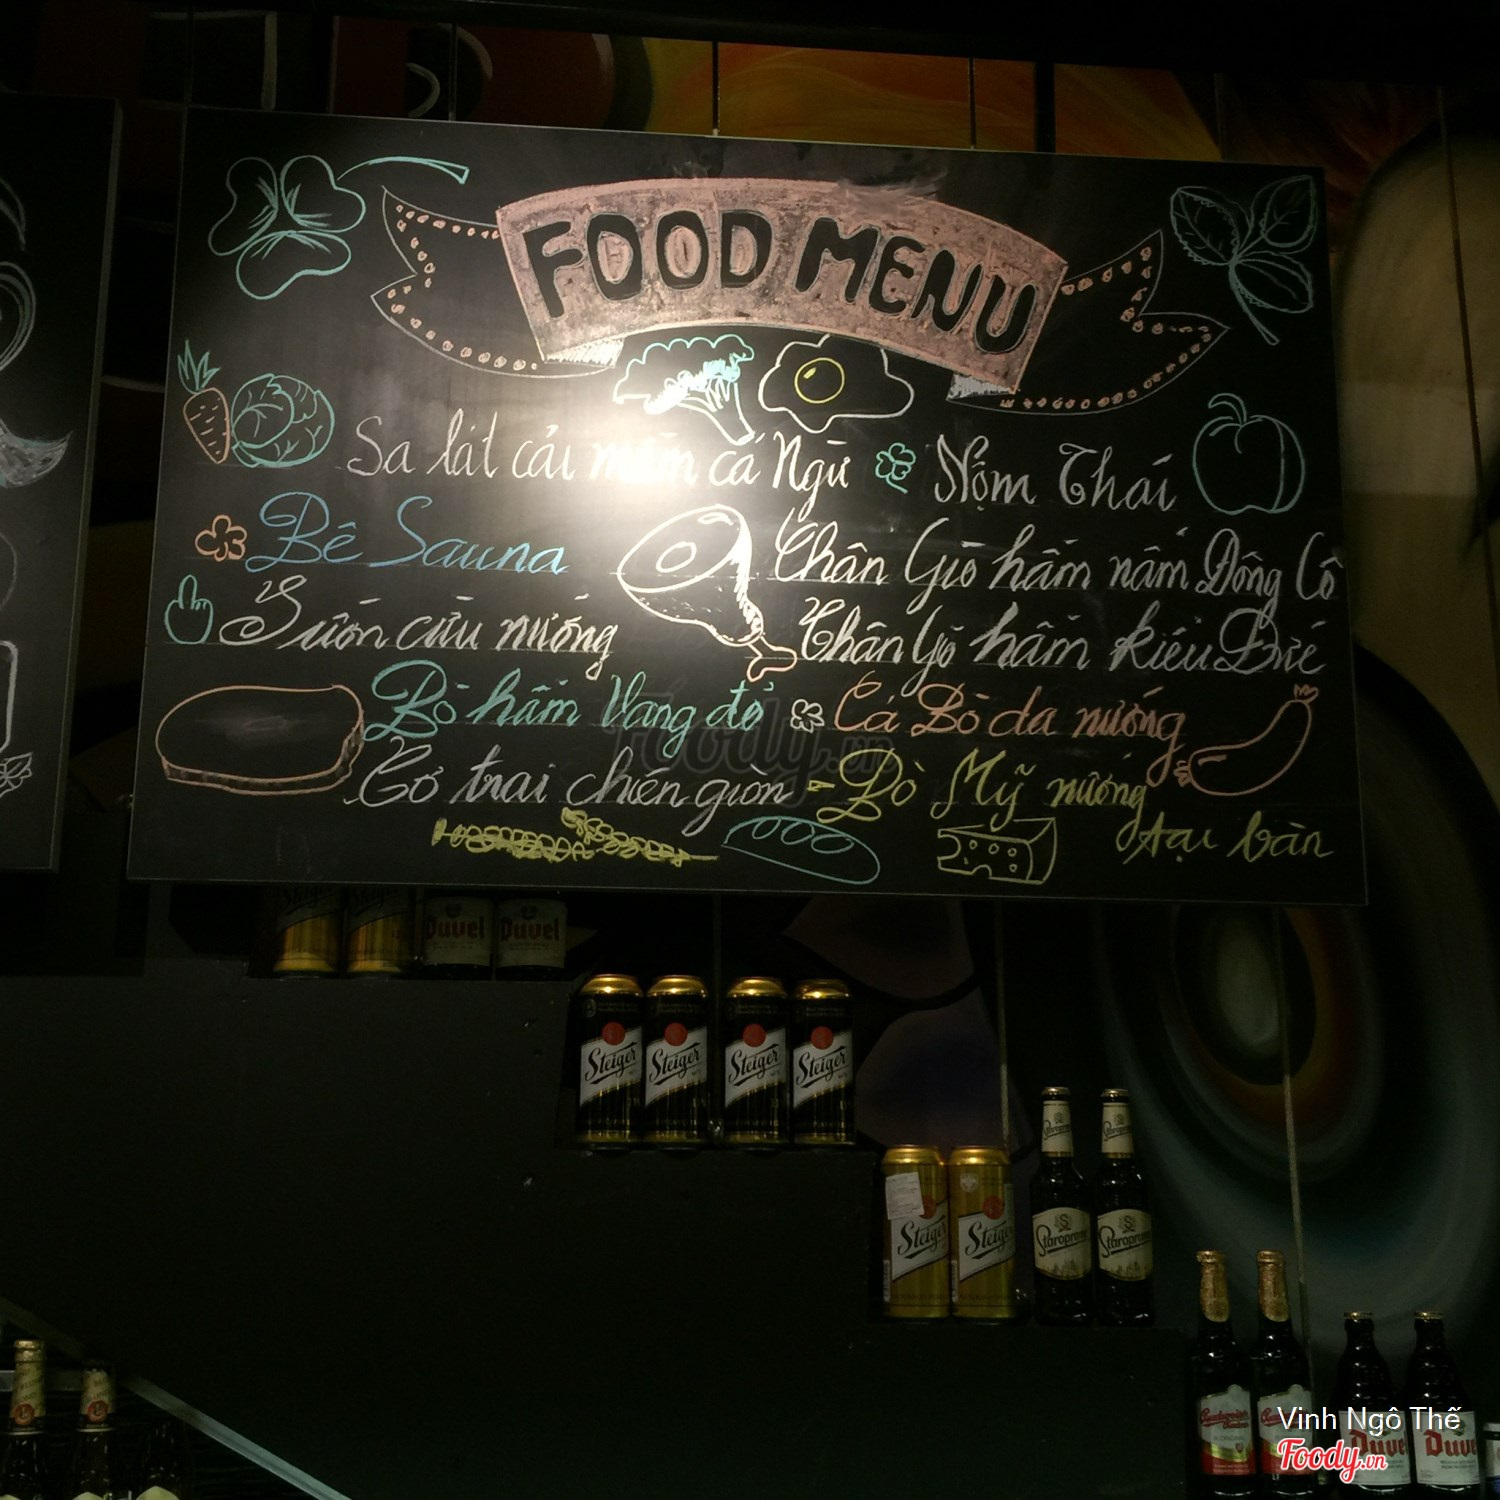 FOOD MENU
Sa lát cải mầm cá Ngừ
Nộm Thái
Bê Sauna
Chân Giò hầm nấm Đông Cô
Sườn cừu nướng
Chân Giò hầm kiểu Đức
Bò hầm Vang đỏ
Cá Bò da nướng
Gà trai chiên giòn
- Bò Mỹ nướng
tại bàn
Steiger
Steiger
Duvel
Duvel
Steiger
Steiger
Steiger
Steiger
Steiger
Steiger
Staropramen
Staropramen
Duvel
Duvel
Foody.vn
Vinh Ngô Thế
Foody.vn